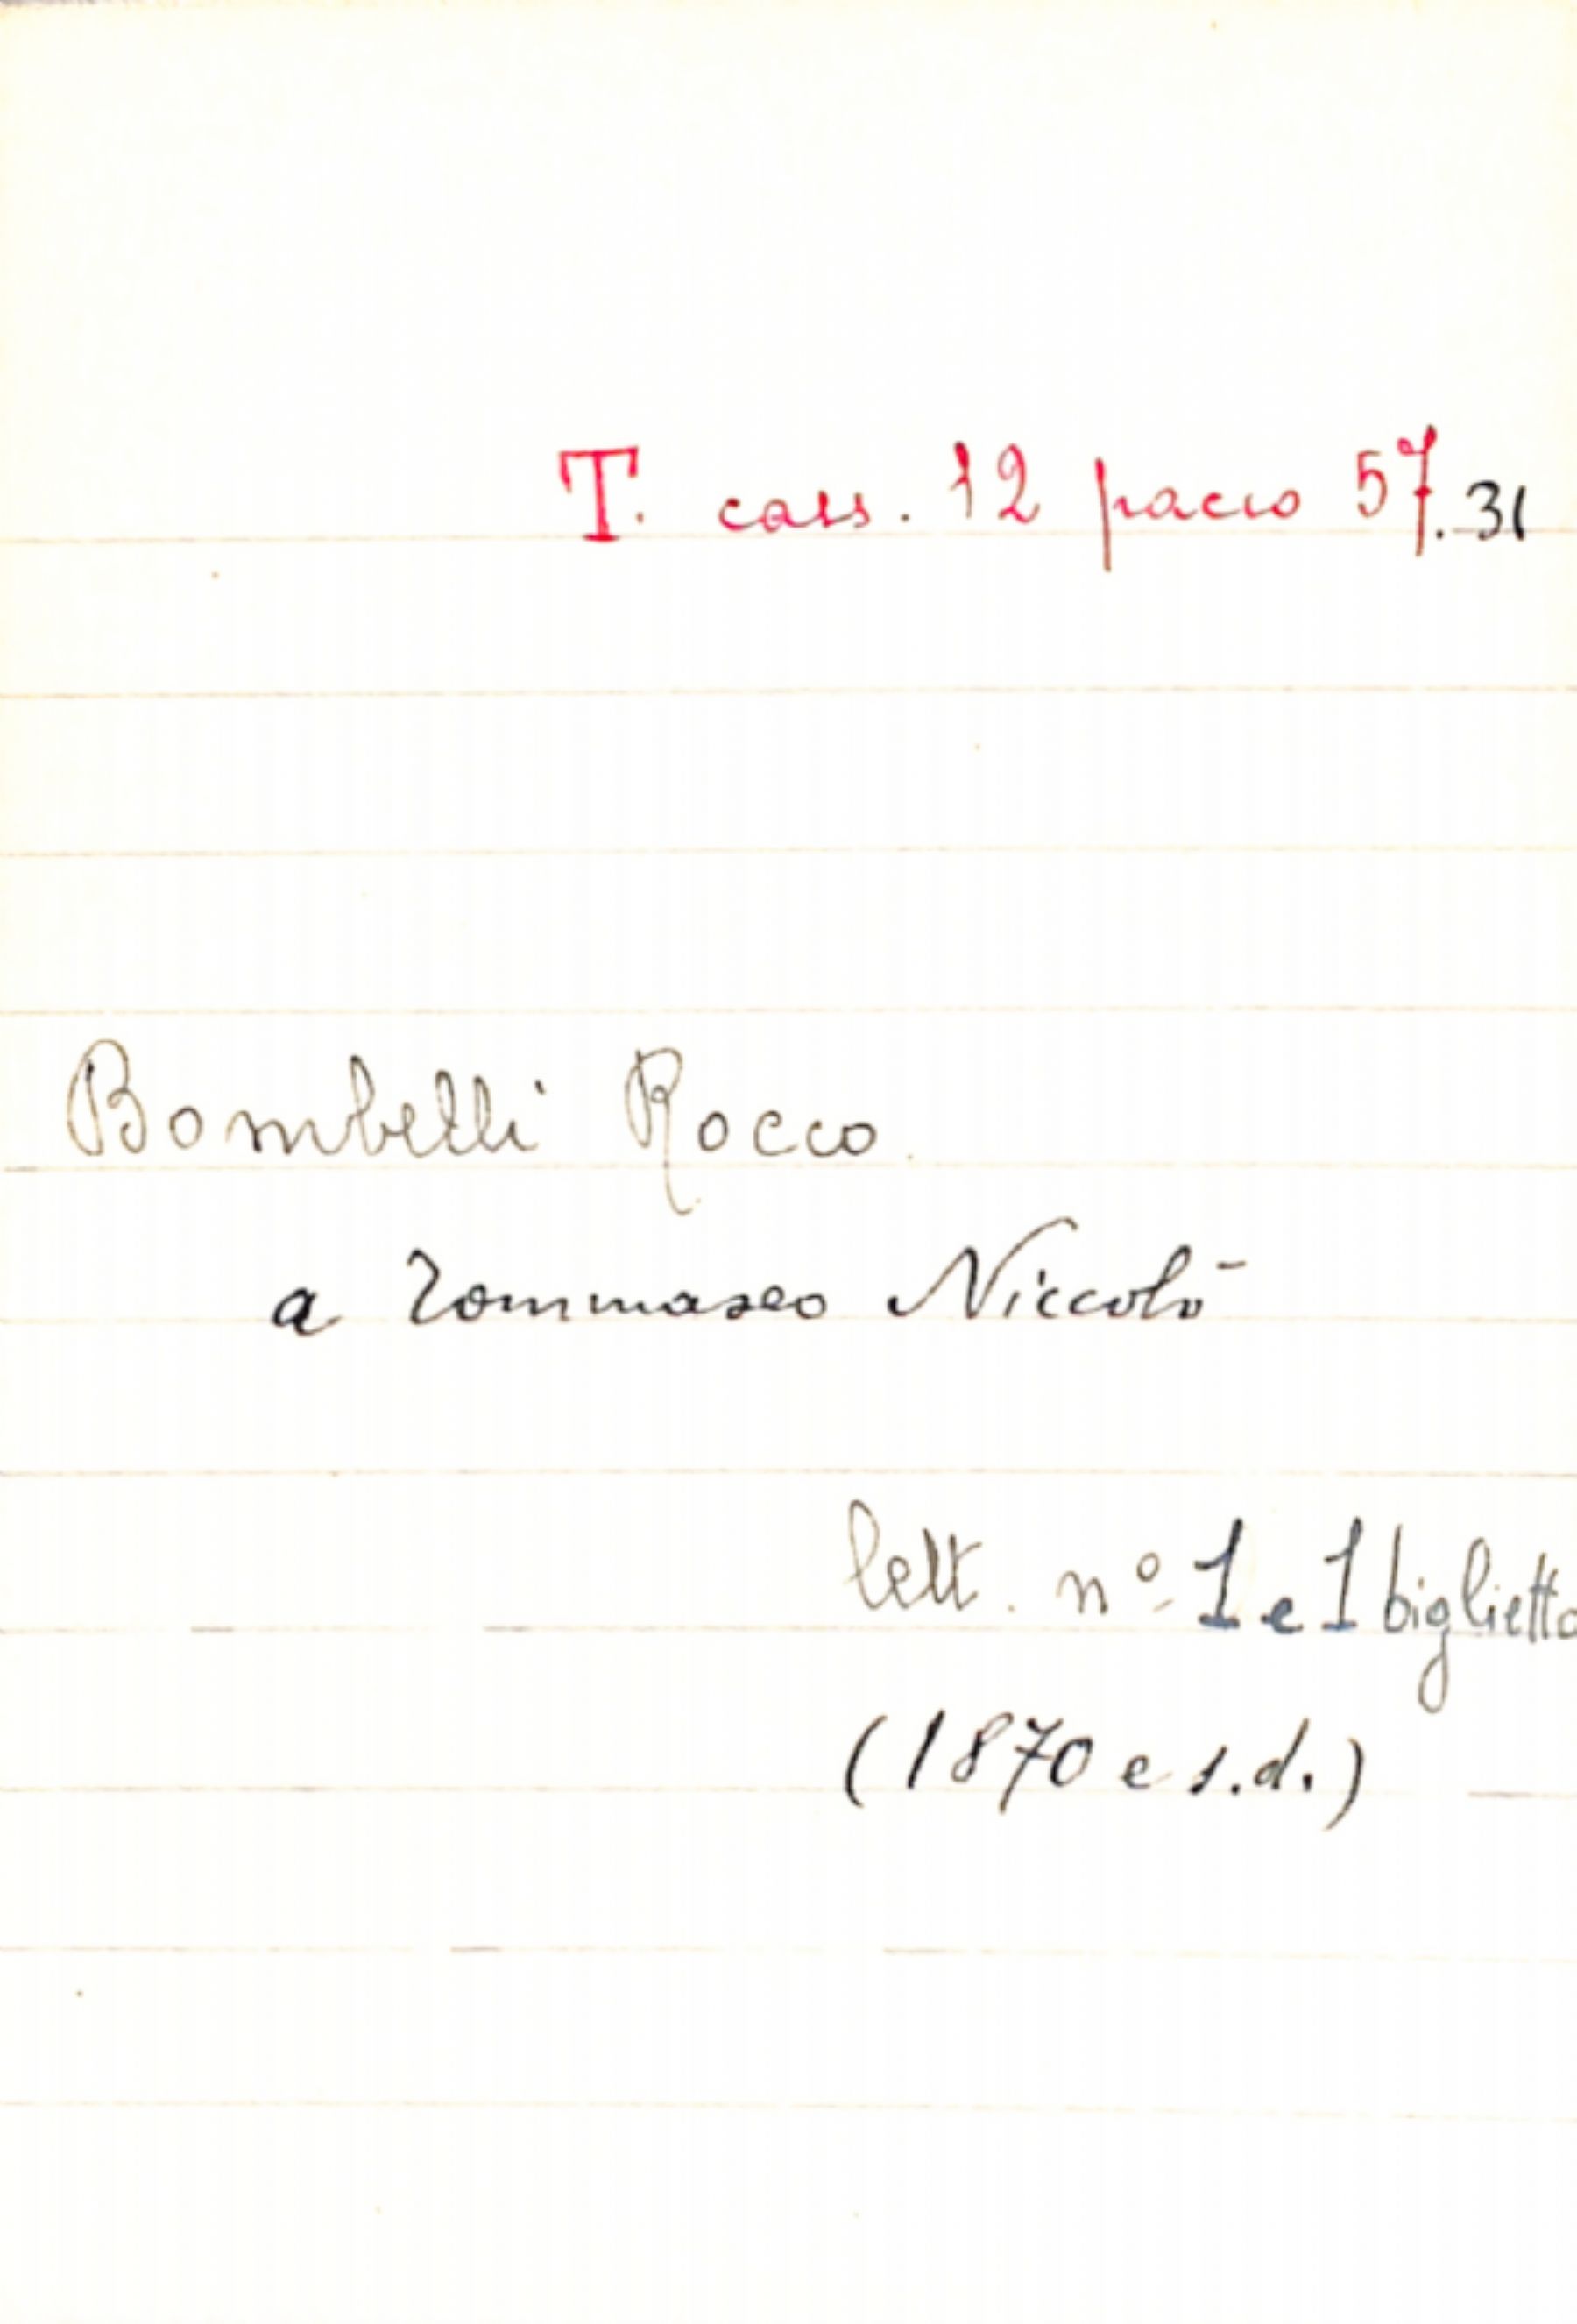 T. cass. 12 pacco 57.31
Bombelli Rocco.
a Tommaseo Niccolò
lett. nº 1 e 1 biglietto
(1870 e s.d.)